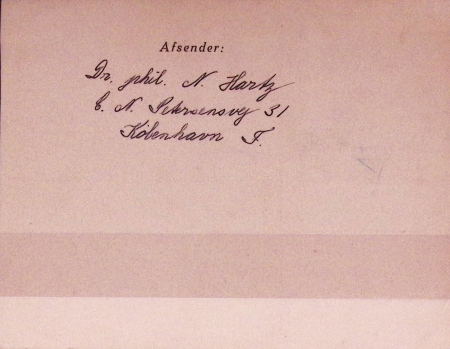 Afsender:
Dr. phil. N. Hartz
C. N. Petersensvej 31
København F.